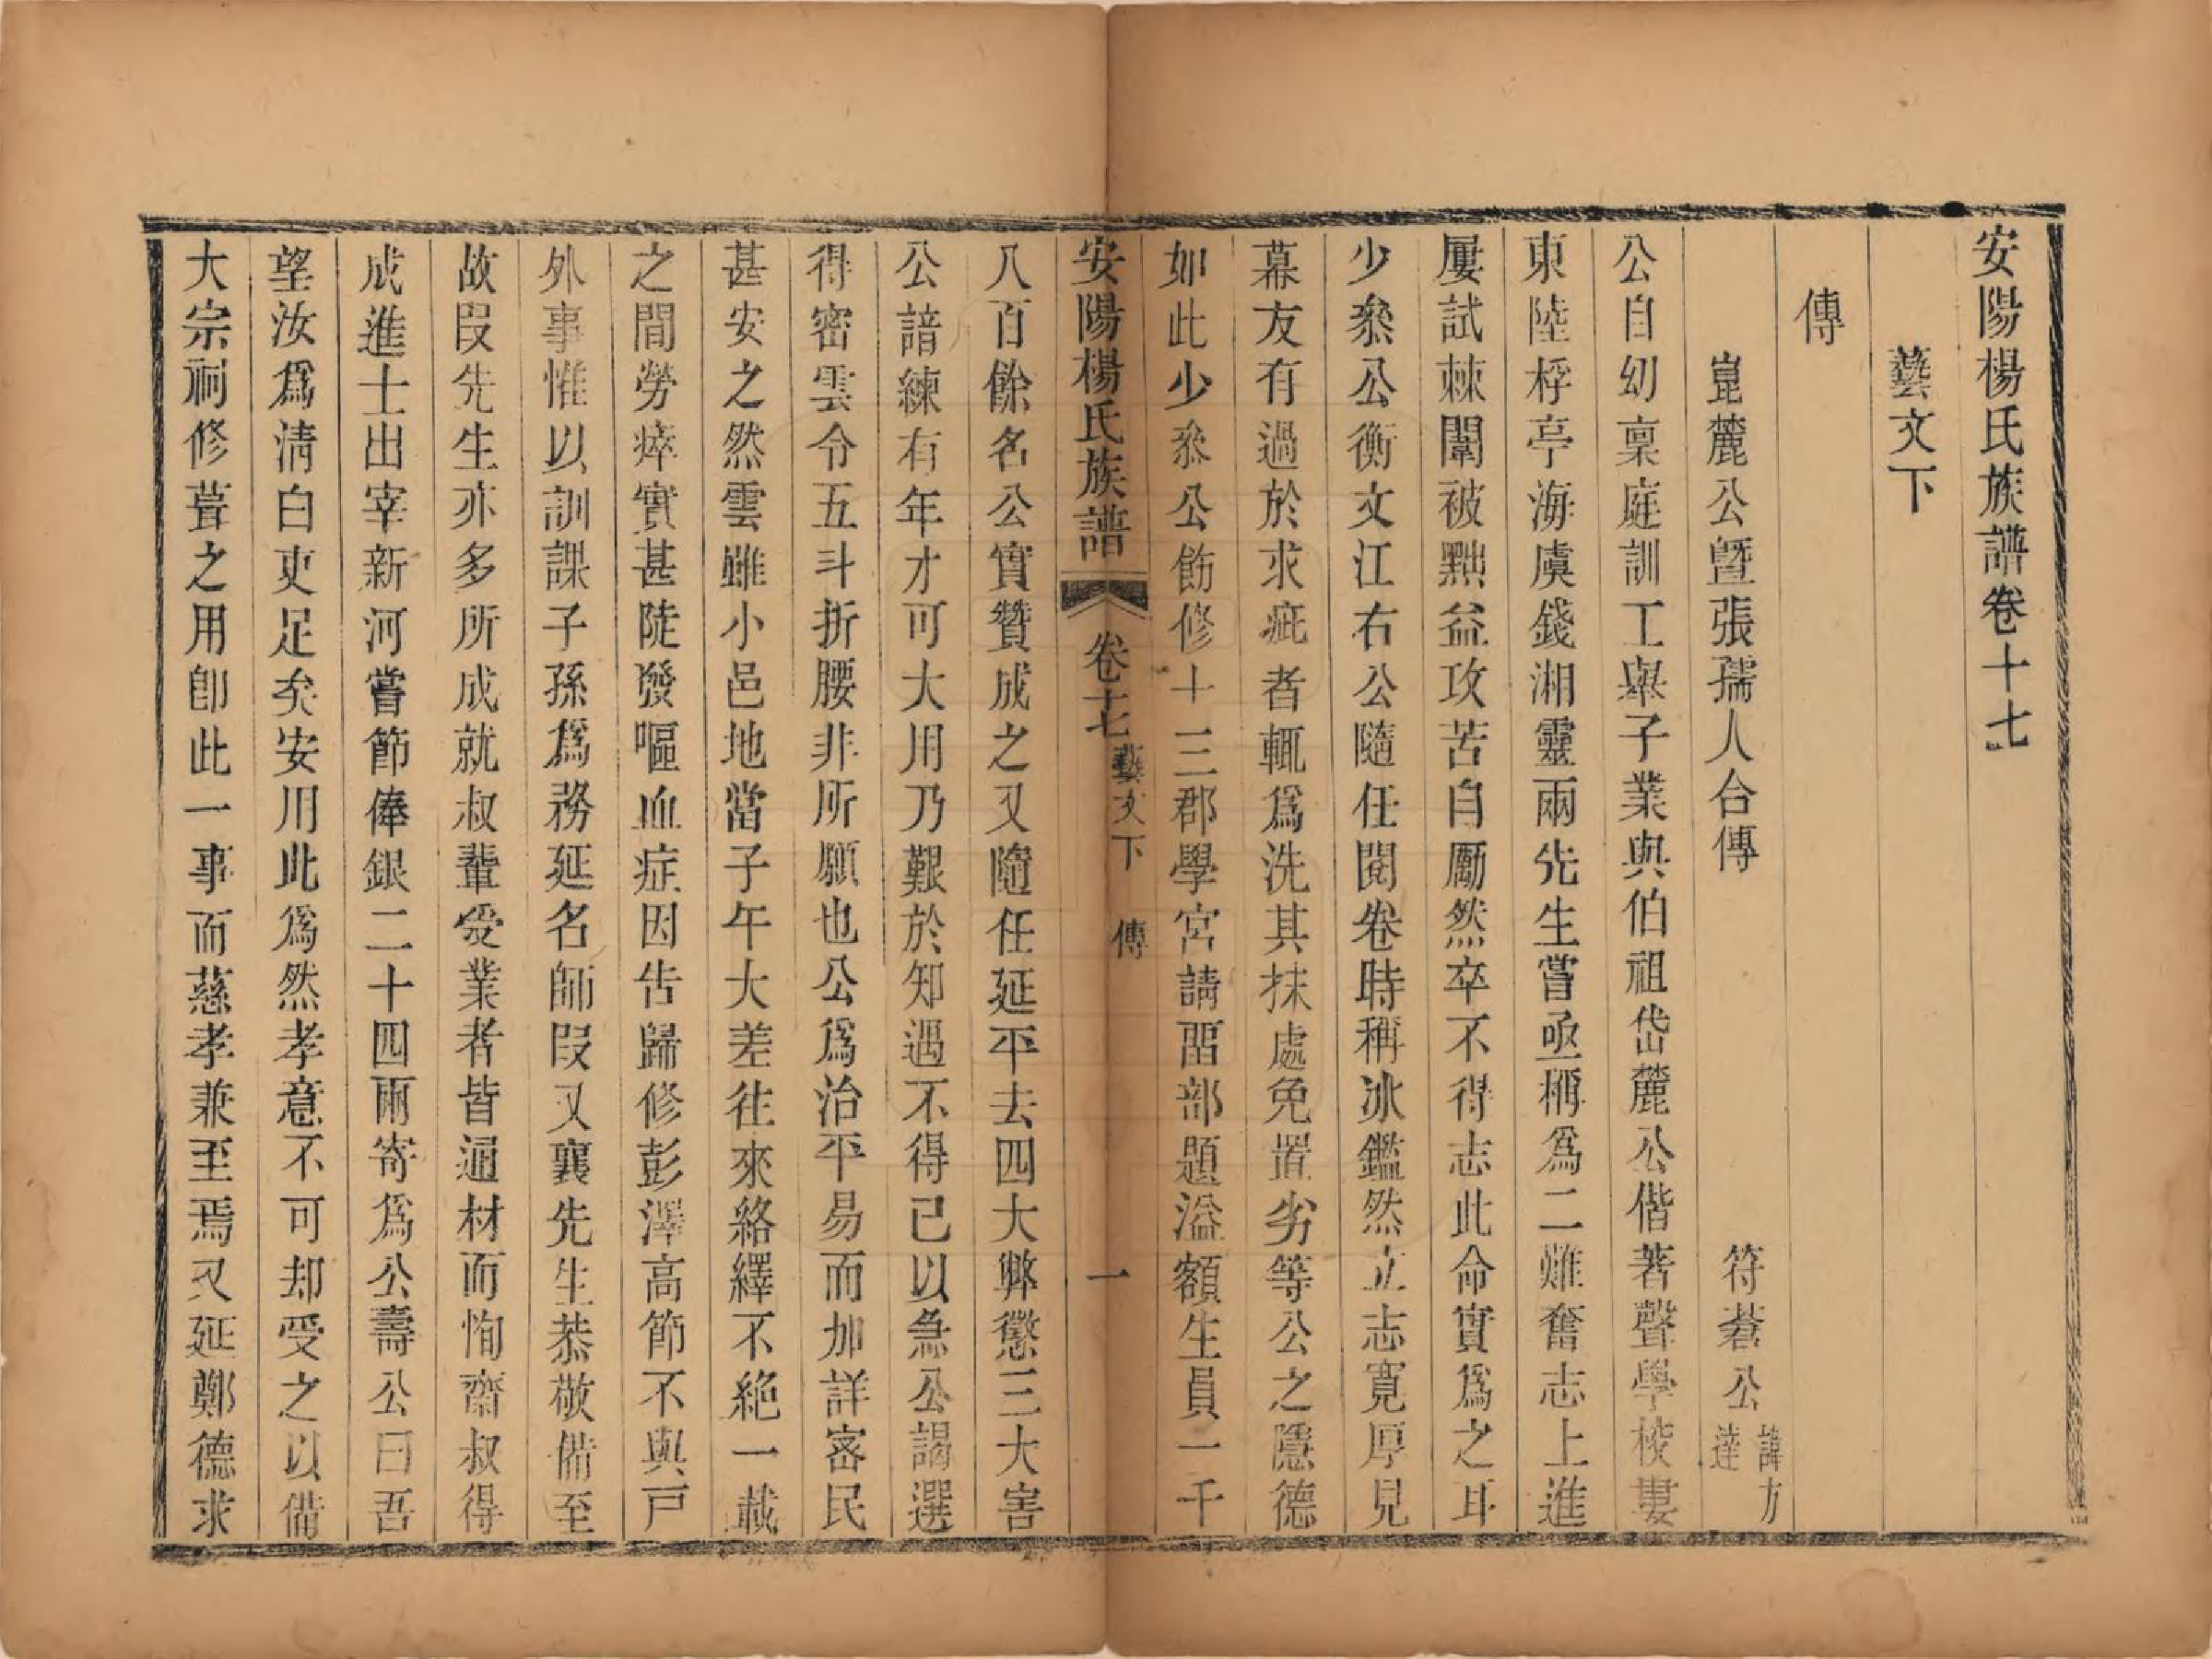 安陽楊氏族譜卷十七
藝文下
傳
崑麓公曁張孺人合傳
符蒼公諱方達
公自幼稟庭訓工舉子業與伯祖岱麓公偕著聲學校婁
東陸桴亭海虞錢湘靈兩先生嘗亟稱爲二難奮志上進
屢試棘闈被黜益攻苦自勵然卒不得志此命實爲之耳
少叅公衡文江右公隨任閱卷時稱冰鑑然立志寬厚見
幕友有過於求疵者輒爲洗其抹處免置劣等公之隱德
如此少叅公飭修十三郡學宮請畱部題溢額生員一千
安陽楊氏族譜 卷十七 藝文下 傳 一
八百餘名公實贊成之又隨任延平去四大弊懲三大害
公諳練有年才可大用乃艱於知遇不得已以急公謁選
得密雲令五斗折腰非所願也公爲治平易而加詳審民
甚安之然雲雖小邑地當子午大差往來絡繹不絕一載
之間勞瘁實甚陡發嘔血症因告歸修彭澤高節不與戸
外事惟以訓課子孫爲務延名師叚又襄先生恭敬備至
故叚先生亦多所成就叔輩受業者皆通材而恂齋叔得
成進士出宰新河嘗節俸銀二十四兩寄爲公壽公曰吾
望汝爲淸白吏足矣安用此爲然孝意不可却受之以備
大宗祠修葺之用卽此一事而慈孝兼至焉又延鄭德求